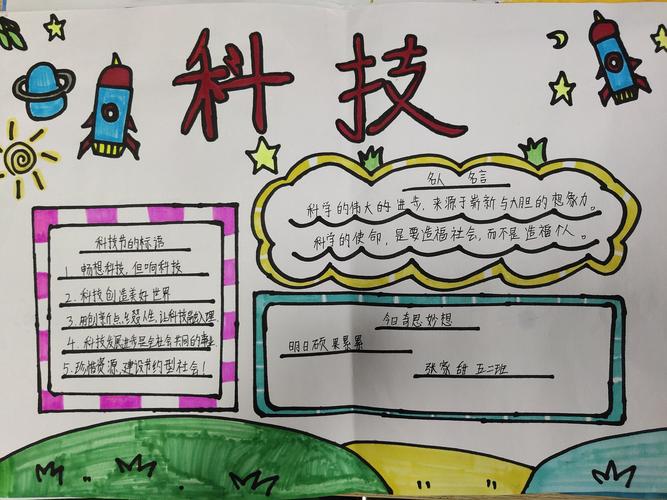 科技
名人 名言
科学的伟大的进步，来源于崭新与大胆的想象力。
科学的使命，是要造福社会，而不是造福个人。
科技节的标语
1. 畅想科技，但响科技
2. 科技创造美好世界
3. 用创新点缀人生，让科技融入理
4. 科技发展进步是全社会共同的事业
5. 珍惜资源，建设节约型社会！
今日奇思妙想
明日硕果累累
张家甜 五二班